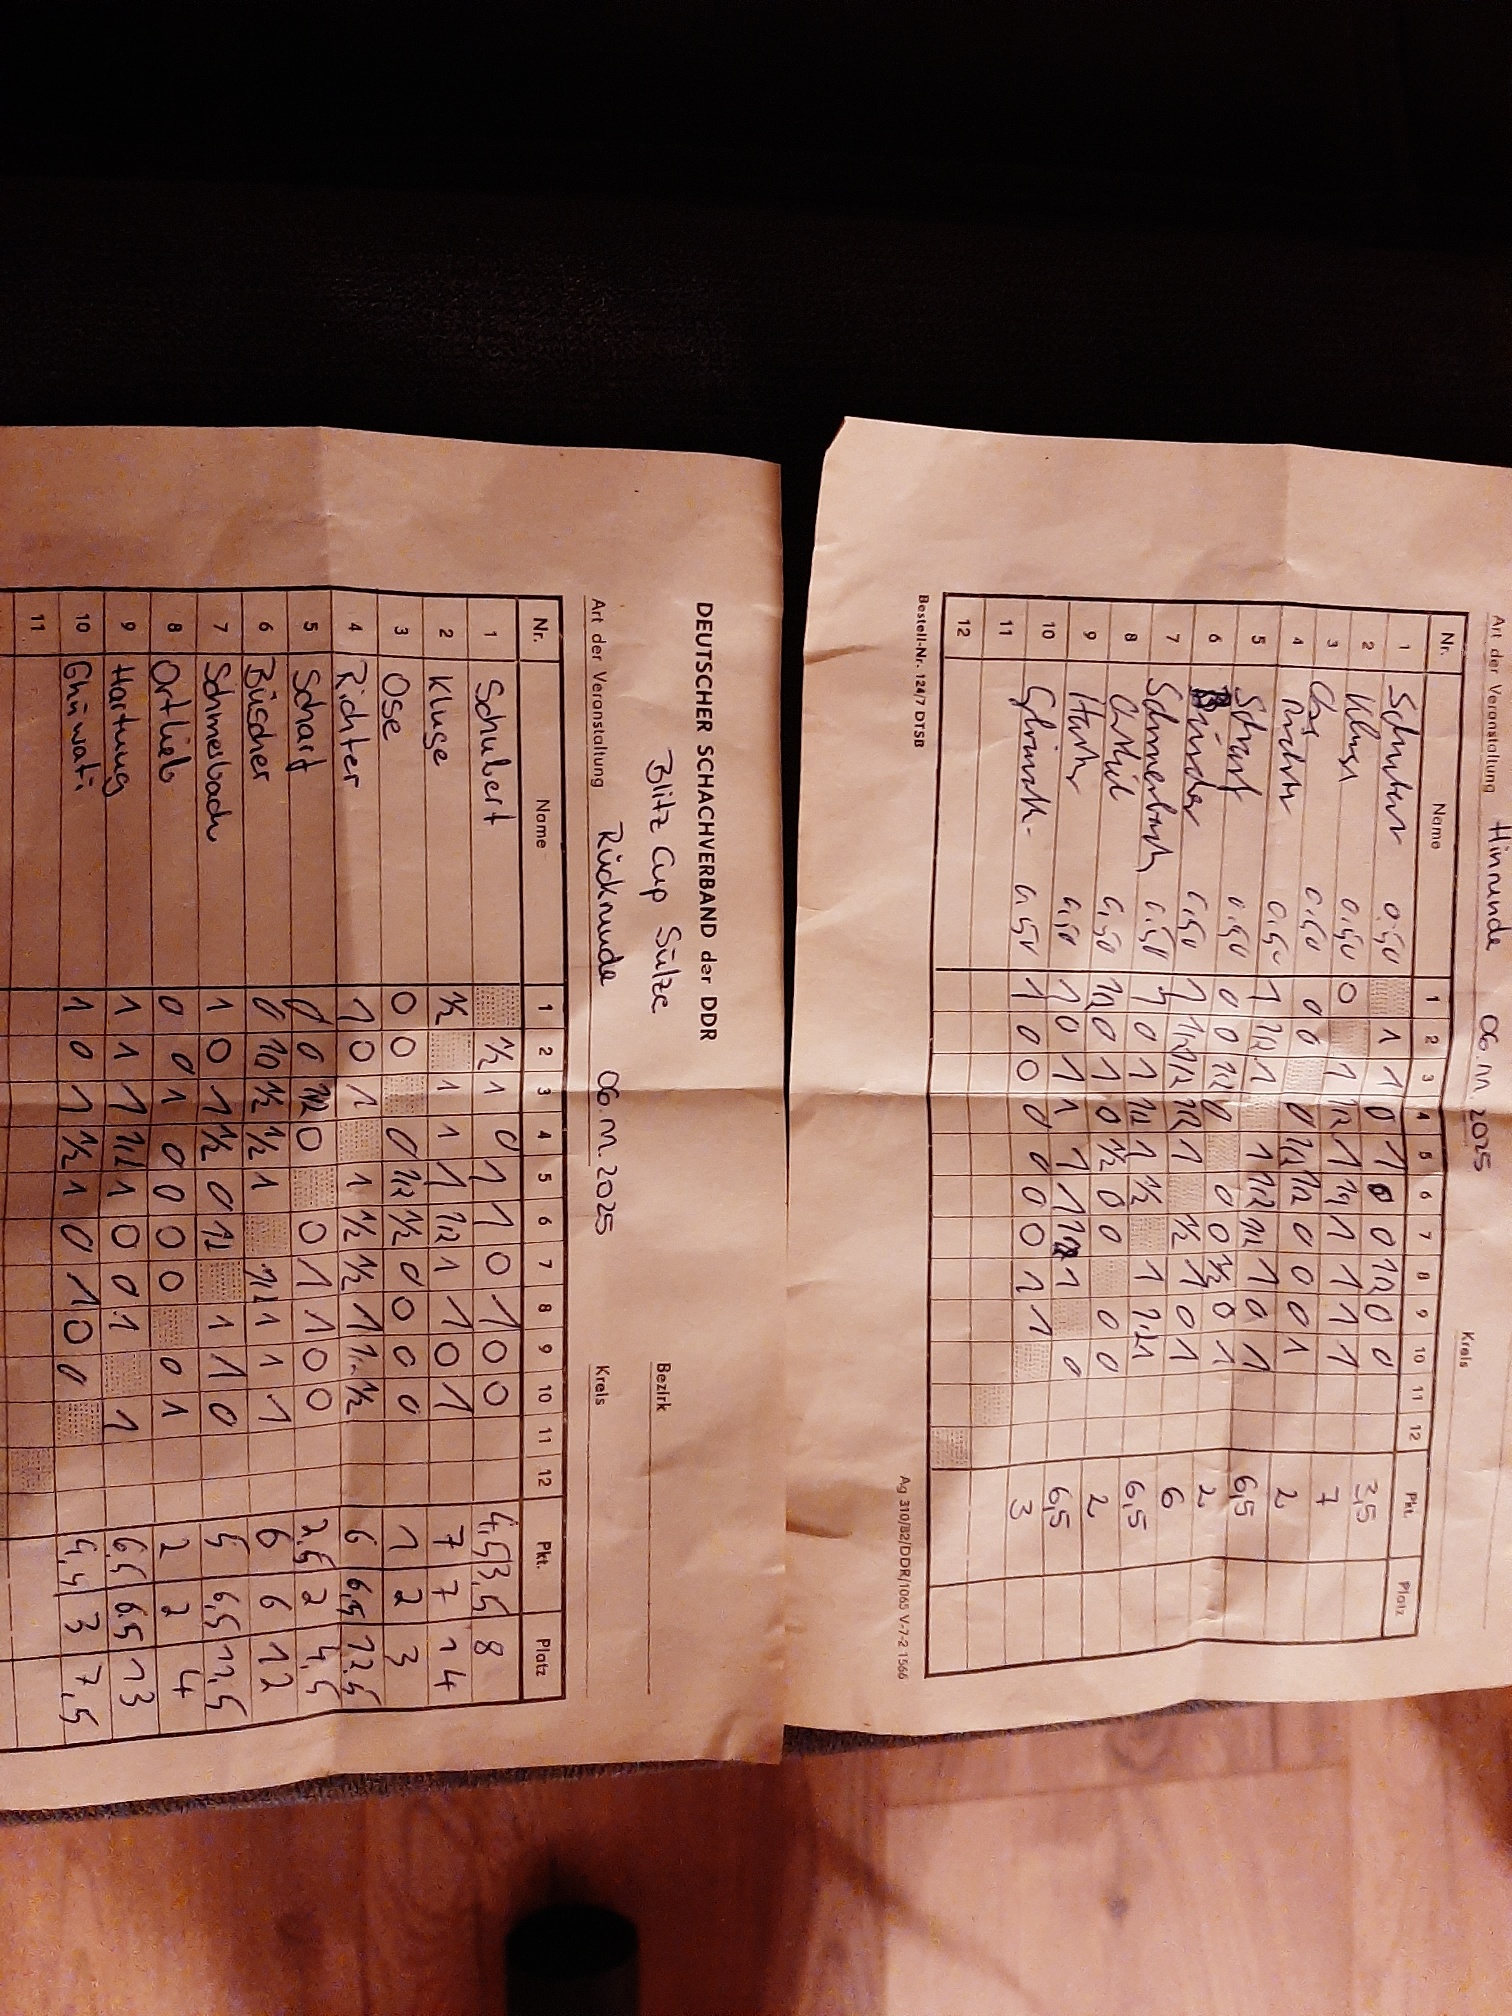 DEUTSCHER SCHACHVERBAND der DDR
Blitz Cup Sülze Bezirk
Art der Veranstaltung Rückrunde 06.M.2025 Kreis
Nr. Name 1 2 3 4 5 6 7 8 9 10 11 12 Pkt. Platz
1 Schubert ½ 1 0 1 1 0 1 0 0 4,5 3,5 8
2 Kluge ½ 1 1 1 1/2 1 1 0 1 7 7 14
3 Ose 0 0 0 1/2 1/2 0 0 0 0 1 2 3
4 Richter 1 0 1 1 1/2 1/2 1 1/2 1/2 6 6,5 12,5
5 Scharf 0 0 1/2 0 0 1 1 0 0 2,5 2 4,5
6 Büscher 0 1/2 1/2 1 1/2 1 1 1 6 6 12
7 Schmerbach 1 0 1 1/2 0 1/2 1 1 0 5 6,5 11,5
8 Ortlieb 0 0 1 0 0 0 0 0 1 2 2 4
9 Hartung 1 1 1 1/2 1 0 0 1 1 6,5 6,5 13
10 1 0 1 1/2 1 0 1 0 0 4,5 3 7,5
11
Art der Veranstaltung Hinrunde 06.M.2025 Kreis
Nr. Name 1 2 3 4 5 6 7 8 9 10 11 12 Pkt. Platz
1 0,50 1 1 0 1 0 0 1/2 0 0 3,5
2 0,50 0 1 1/2 1 1/2 1 1 1 1 7
3 0,50 0 0 0 1/2 1/2 0 0 0 1 2
4 0,50 1 1/2 1 1 1/2 1/2 1 0 1 6,5
5 0,50 0 0 1/2 0 0 0 1/2 0 1 2
6 0,50 1 1/2 1/2 1/2 1 1/2 1 0 1 6
7 Schmerbach 0,50 1 0 1 1/2 1 1/2 1 1/2 1 6,5
8 0,50 1/2 0 1 0 1/2 0 0 0 0 2
9 0,50 1 0 1 1 1 1 1/2 1 0 6,5
10 0,50 1 0 0 0 0 0 0 1 1 3
11
12
Bestell-Nr. 124/7 DTSB Ag 310/82/DDR/1065 V-7-2 1566